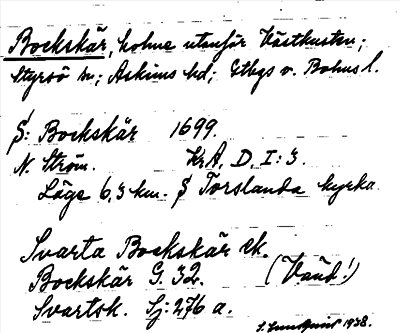 Bockskär, holme utanför Västkusten;
Styrsö sn; Askims hd; Gtbgs o. Bohus l.
S: Bockskär 1699.
N. Ström. KrA, D. I: 3.
Läge 6,3 km. S Torslanda kyrka
Svarta Bockskär sk.
Bockskär G. 32. (Vaud!)
Svartsk. Sj: 276 a.
S. Lundquist 1938.